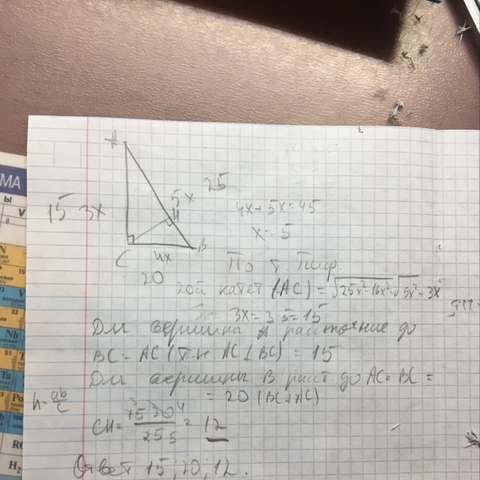 A
15 3x
5x 25
H
C 4x B
20
4x + 5x = 45
x = 5
По т Пиф
2ой катет (AC) = √25x²-16x² = √9x² = 3x
3x = 3·5 = 15
Для вершины A расстояние до
BC = AC (т.к. AC ⊥ BC) = 15
Для вершины B расст до AC = BC =
= 20 (BC ⊥ AC)
h = ab/c
CH = 15·20/25 = 12
3 4 5
Ответ 15; 20; 12.
МА
V
N
V
Nb
Ta
Po
H₂